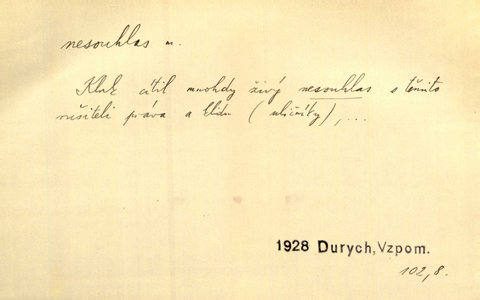 nesouhlas m.
Klak cítil mnohdy živý nesouhlas s těmito
rušiteli práva a klidu (uličníky), ...
1928 Durych, Vzpom.
102, 8.